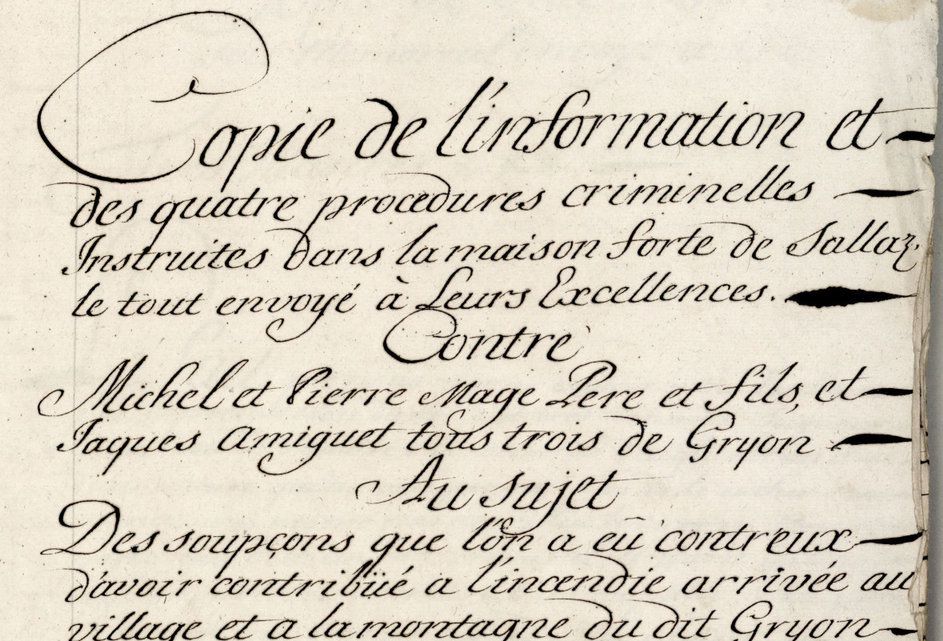 Copie de l'information et
des quatre procedures criminelles
Instruites dans la maison forte de Sallaz.
le tout envoyé à Leurs Excellences.
Contre
Michel et Pierre Mage Pere et fils, et
Jaques Amiguet tous trois de Gryon
Au sujet
Des soupçons que l'on a eû contreux
d'avoir contribüé a l'incendie arrivée au
village et a la montagne du dit Gryon